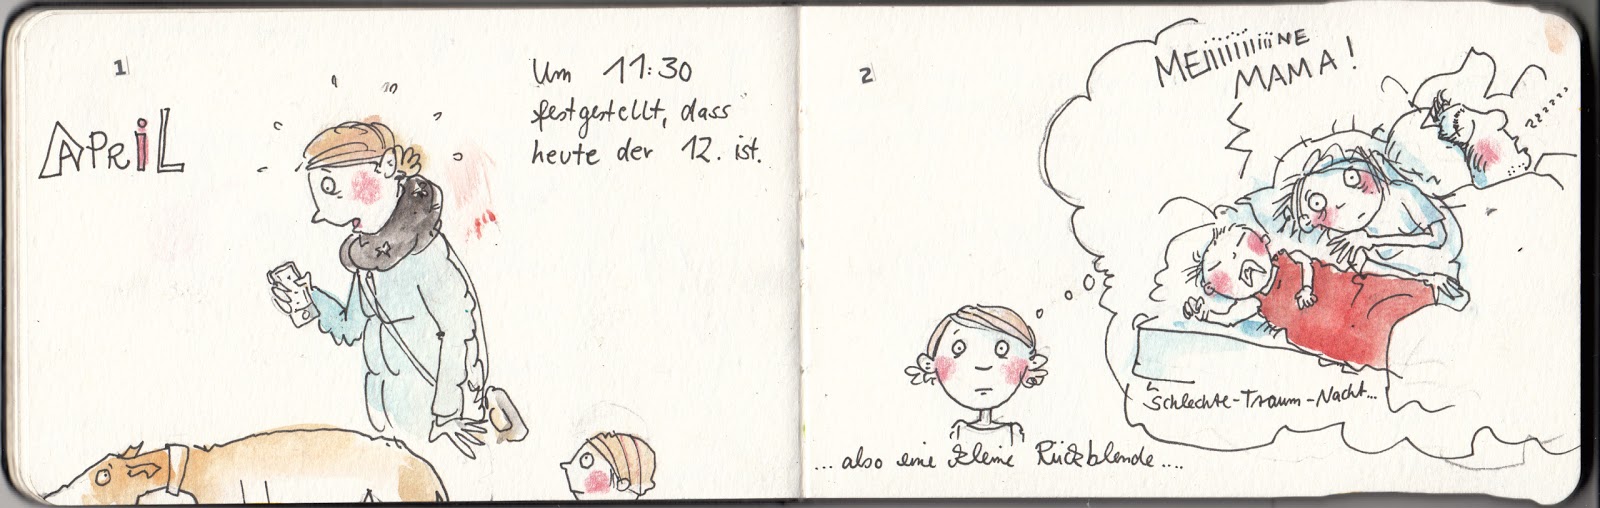 1
APRiL
Um 11:30
festgestellt, dass
heute der 12. ist.
2
MEiiiiiiiiiiNE
MAMA!
zzzzzz
Schlechte-Traum-Nacht...
... also eine kleine Rückblende....